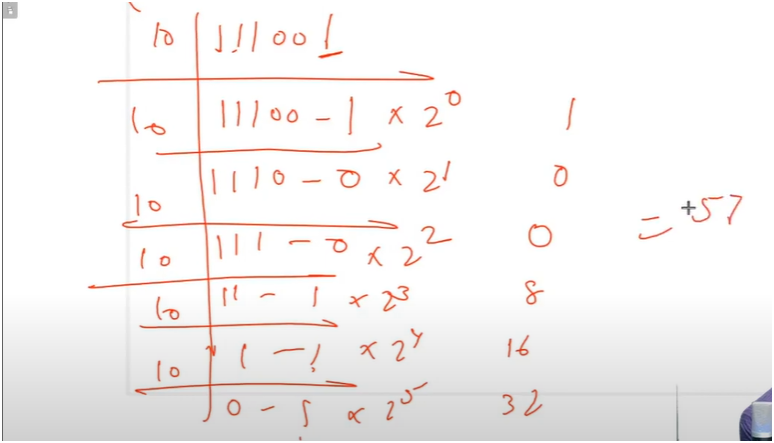 10 | 111001
10 | 11100 - 1 × 2⁰ 1
10 | 1110 - 0 × 2¹ 0
10 | 111 - 0 × 2² 0 = 57
10 | 11 - 1 × 2³ 8
10 | 1 - 1 × 2⁴ 16
0 - 1 × 2⁵ 32